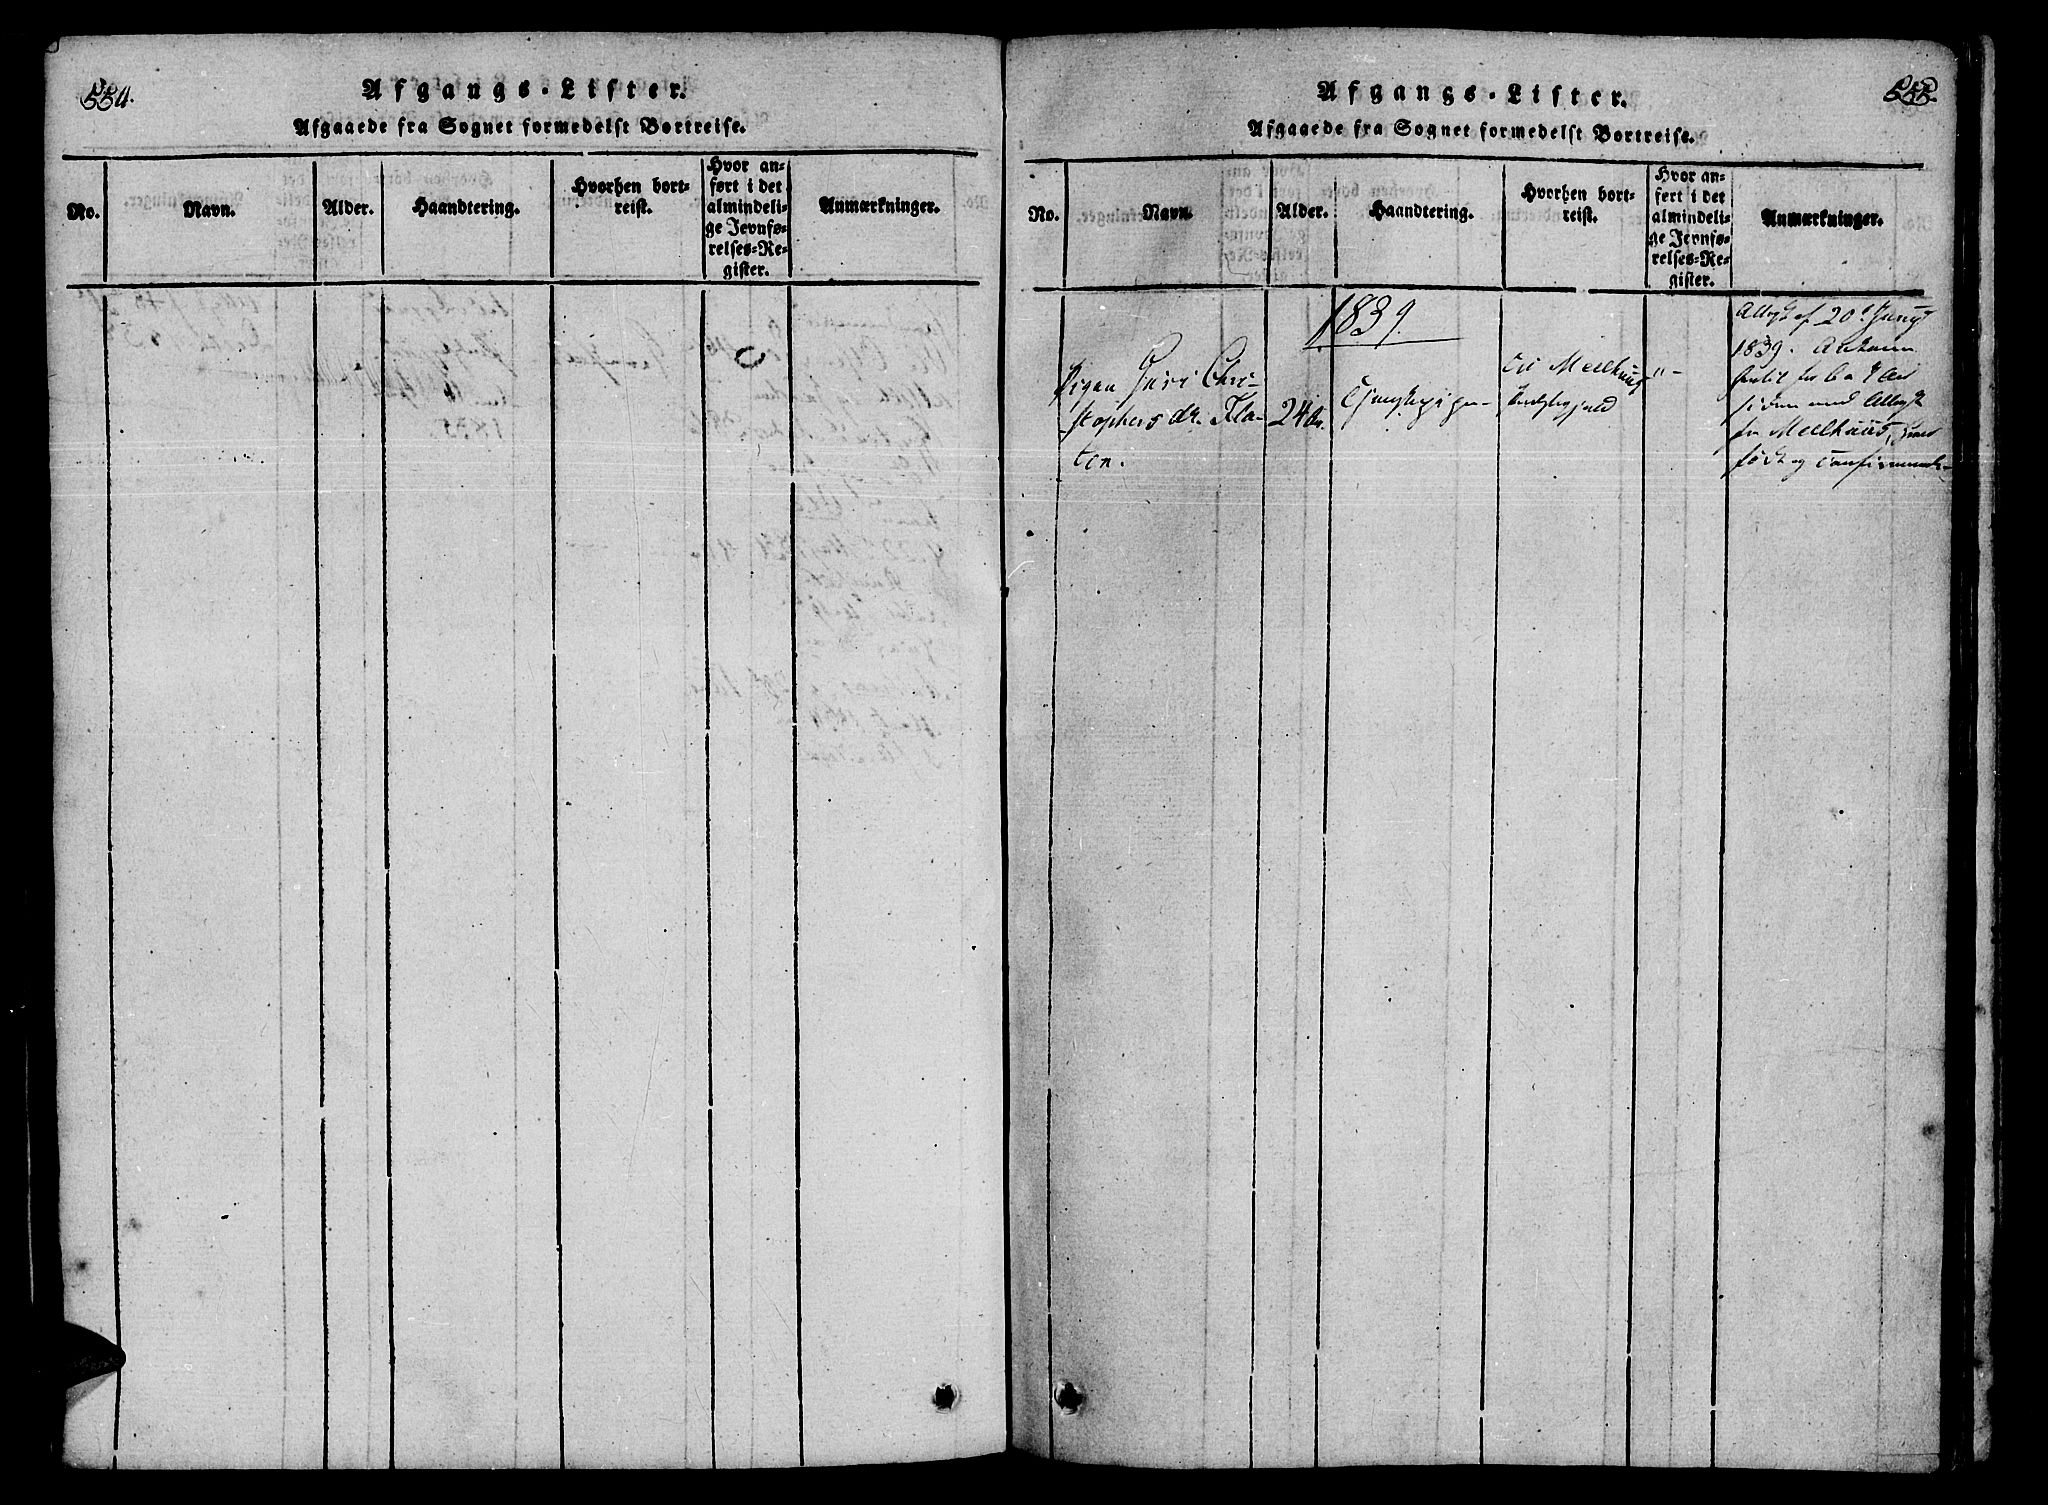 554.
Afgangs-Lister.
Afgaaede fra Sognet formedelst Bortreise.
No.
Navn.
Alder.
Haandtering.
Hvorhen bort-
reist.
Hvor an-
ført i det
almindeli-
ge Jevnfø-
relses-Re-
gister.
Anmærkninger.
555.
Afgangs-Lister.
Afgaaede fra Sognet formedelst Bortreise.
No.
Navn.
Alder.
Haandtering.
Hvorhen bort-
reist.
Hvor an-
ført i det
almindeli-
ge Jevnfø-
relses-Re-
gister.
Anmærkninger.
1839.
Pigen Guri Chri-
stophers dr. Fla-
ten.
24
Tjenestepige
til Meelhuus
Præstegjeld
"
Attest af 20
1839.
siden med Attest
fra Meelhuus,
født og confirmeret